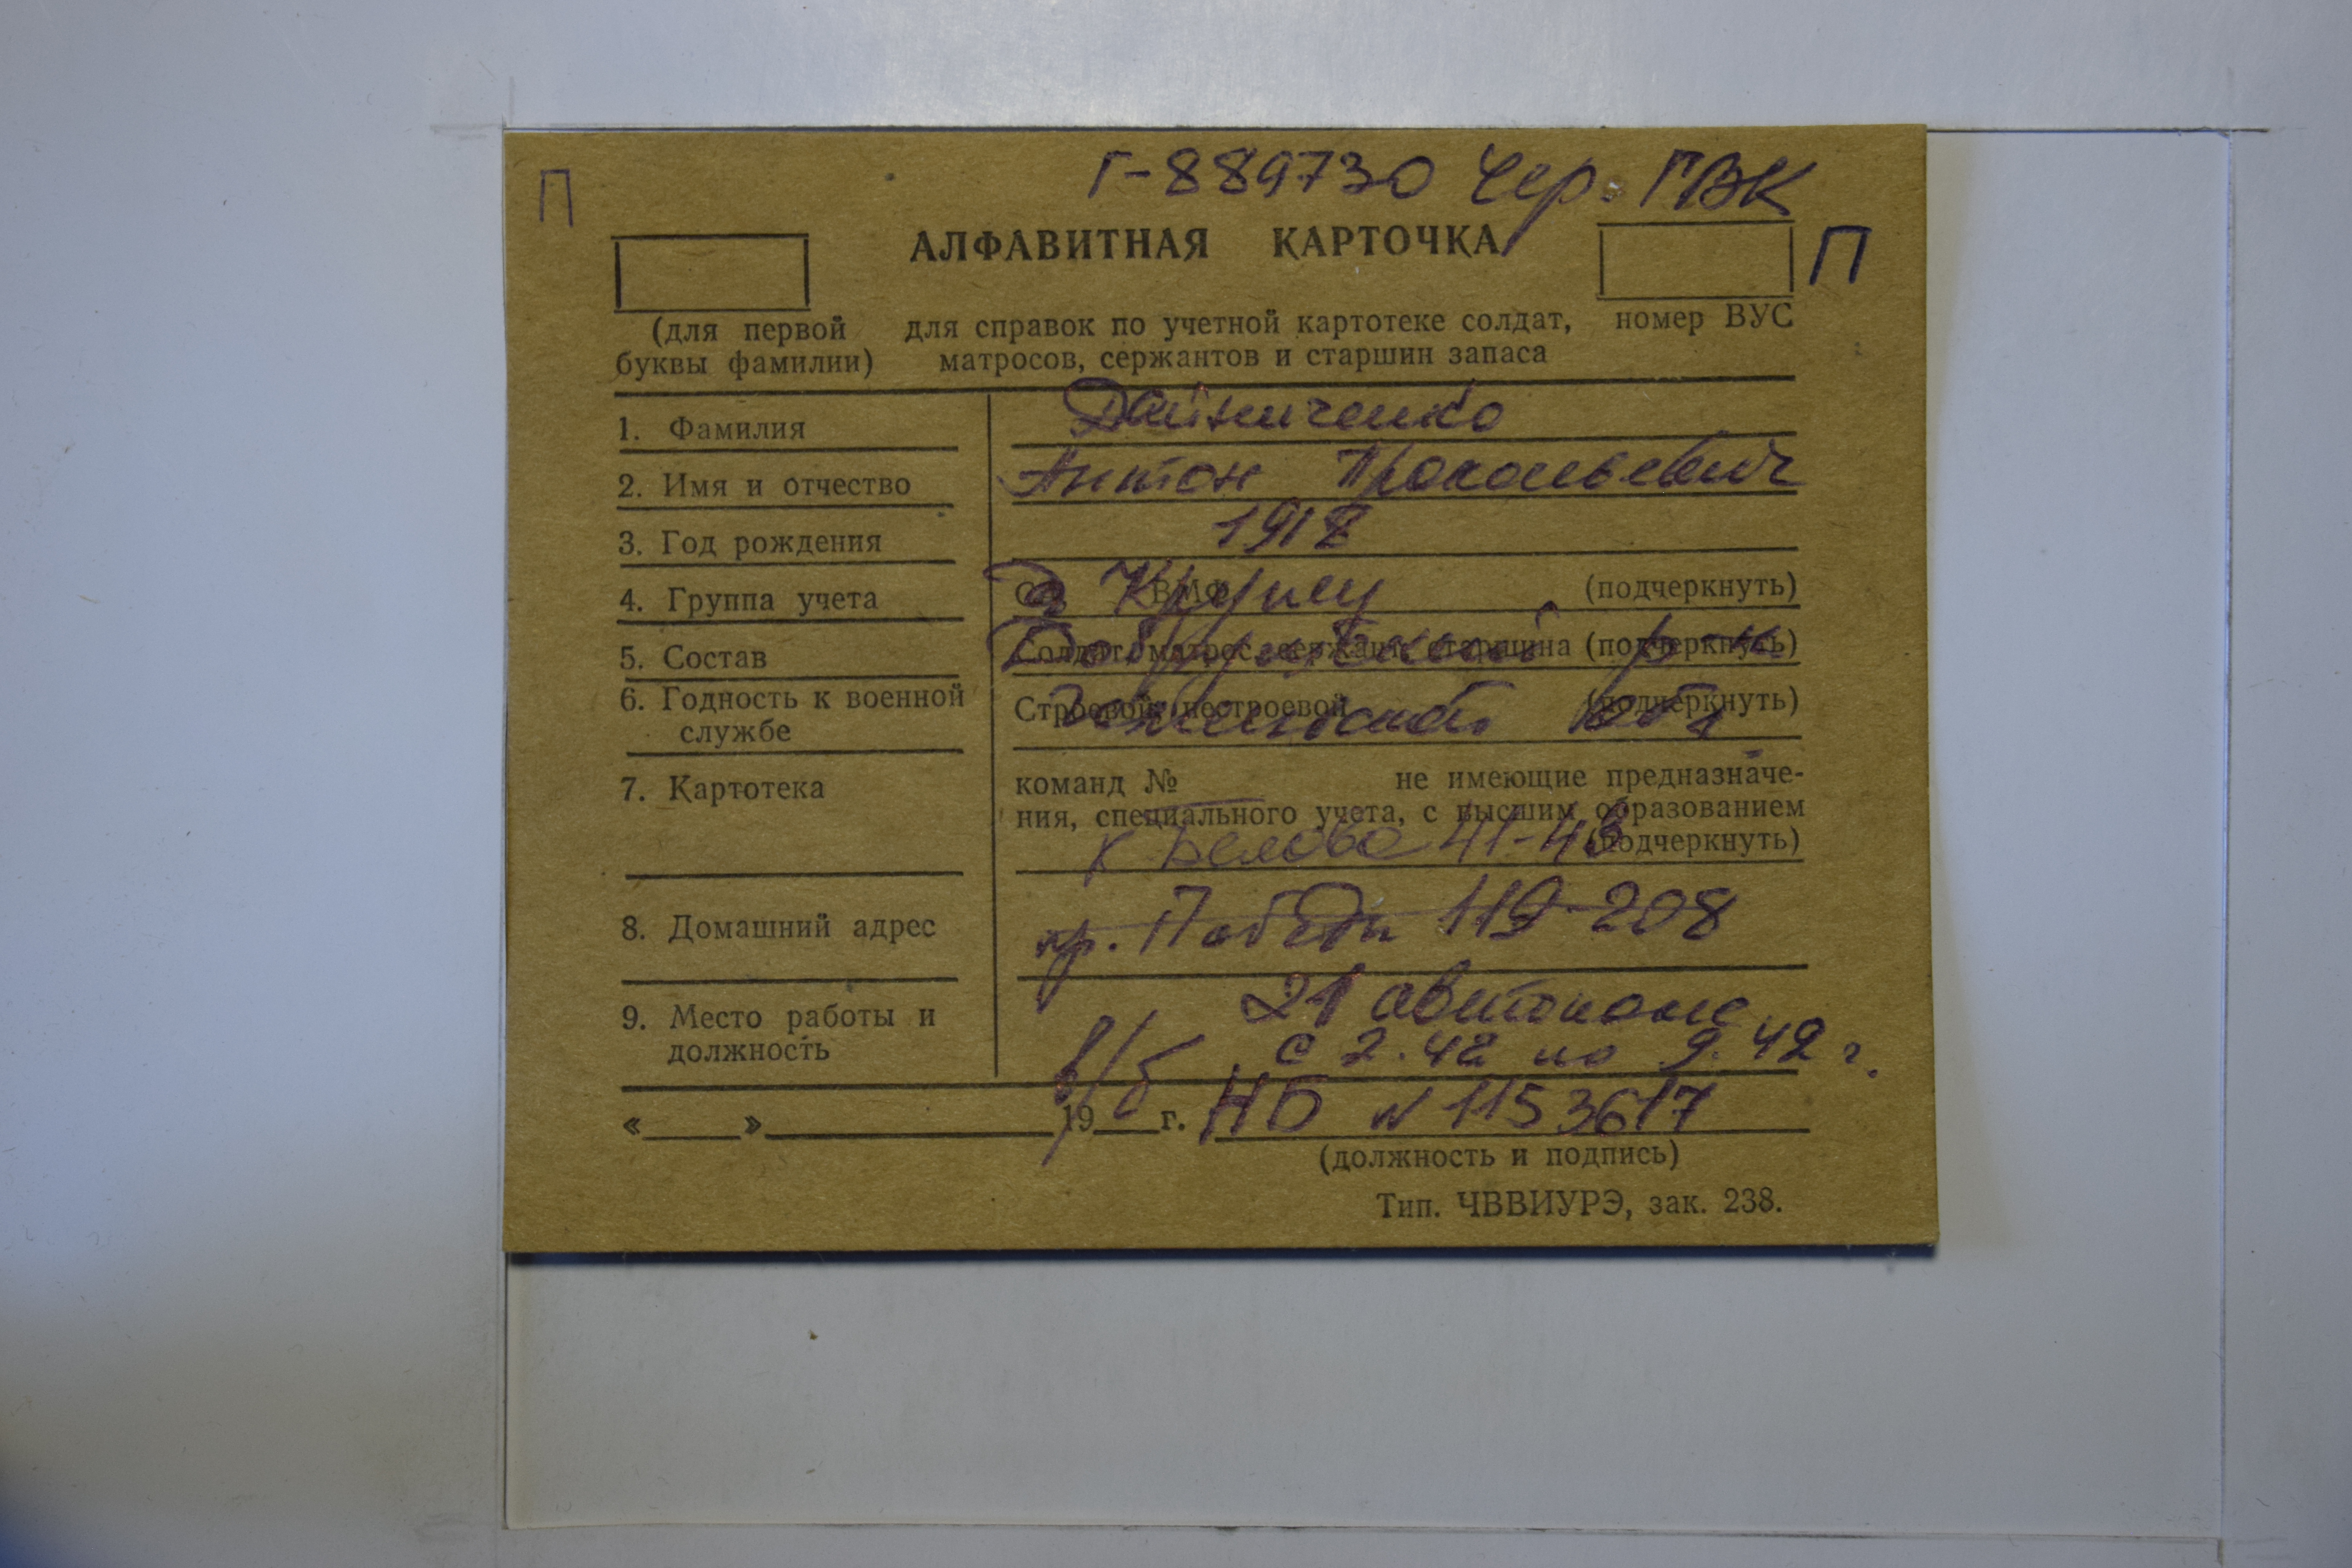 Г-889730 Чер. ГВК
П
АЛФАВИТНАЯ КАРТОЧКА
П
(для первой буквы фамилии)
для справок по учетной картотеке солдат, матросов, сержантов и старшин запаса
номер ВУС
1. Фамилия
2. Имя и отчество Антон
3. Год рождения
4. Группа учета СА ВМФ (подчеркнуть)
5. Состав Солдат, матрос, сержант, старшина (подчеркнуть)
р-н
6. Годность к военной службе Строевой, нестроевой (подчеркнуть)
обл
7. Картотека команд № не имеющие предназначе-
ния, специального учета, с высшим образованием
(подчеркнуть)
к Белова 41-43
8. Домашний адрес пр. Победы 119-208
9. Место работы и должность 21
с 2.42 по 9.42 г.
в/б
« » 19 г. НБ № 1153617
(должность и подпись)
Тип. ЧВВИУРЭ, зак. 238.